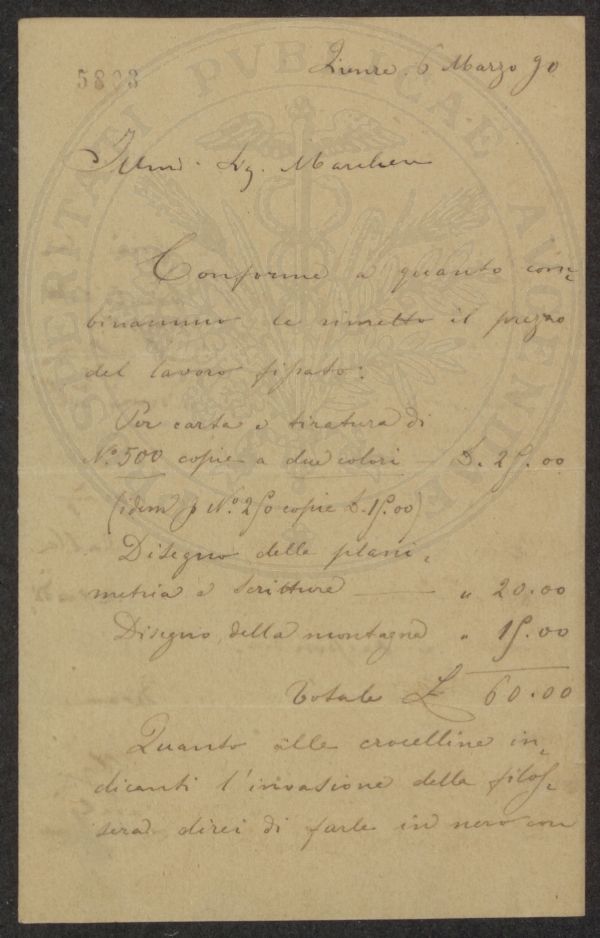 5803
Firenze, 6 Marzo 90
Sig. Marchese
Conforme a quanto com-
binammo le rimetto il prezzo
del lavoro fissato:
Per carta e tiratura di
N.º 500 copie a due colori — L. 25.00
(idem p N.º 250 copie L. 15.00)
Disegno della plani-
metria e scritture — " 20.00
Disegno della montagna " 15.00
Totale £ 60.00
Quanto alle crocelline in-
dicanti l'invasione della filos-
sera direi di farle in nero con
PROSPERITATI PVBLICAE AVGENDAE